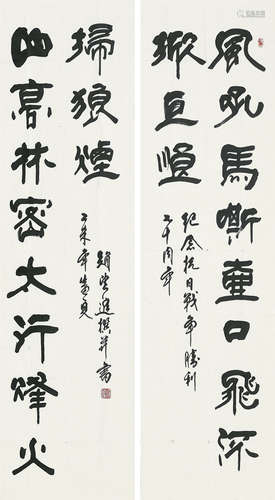 風吼馬嘶壺口飛流
掀巨
紀念抗日戰爭勝利
七十周年
山高林密太行烽火
掃狼煙
撰并書
乙未年